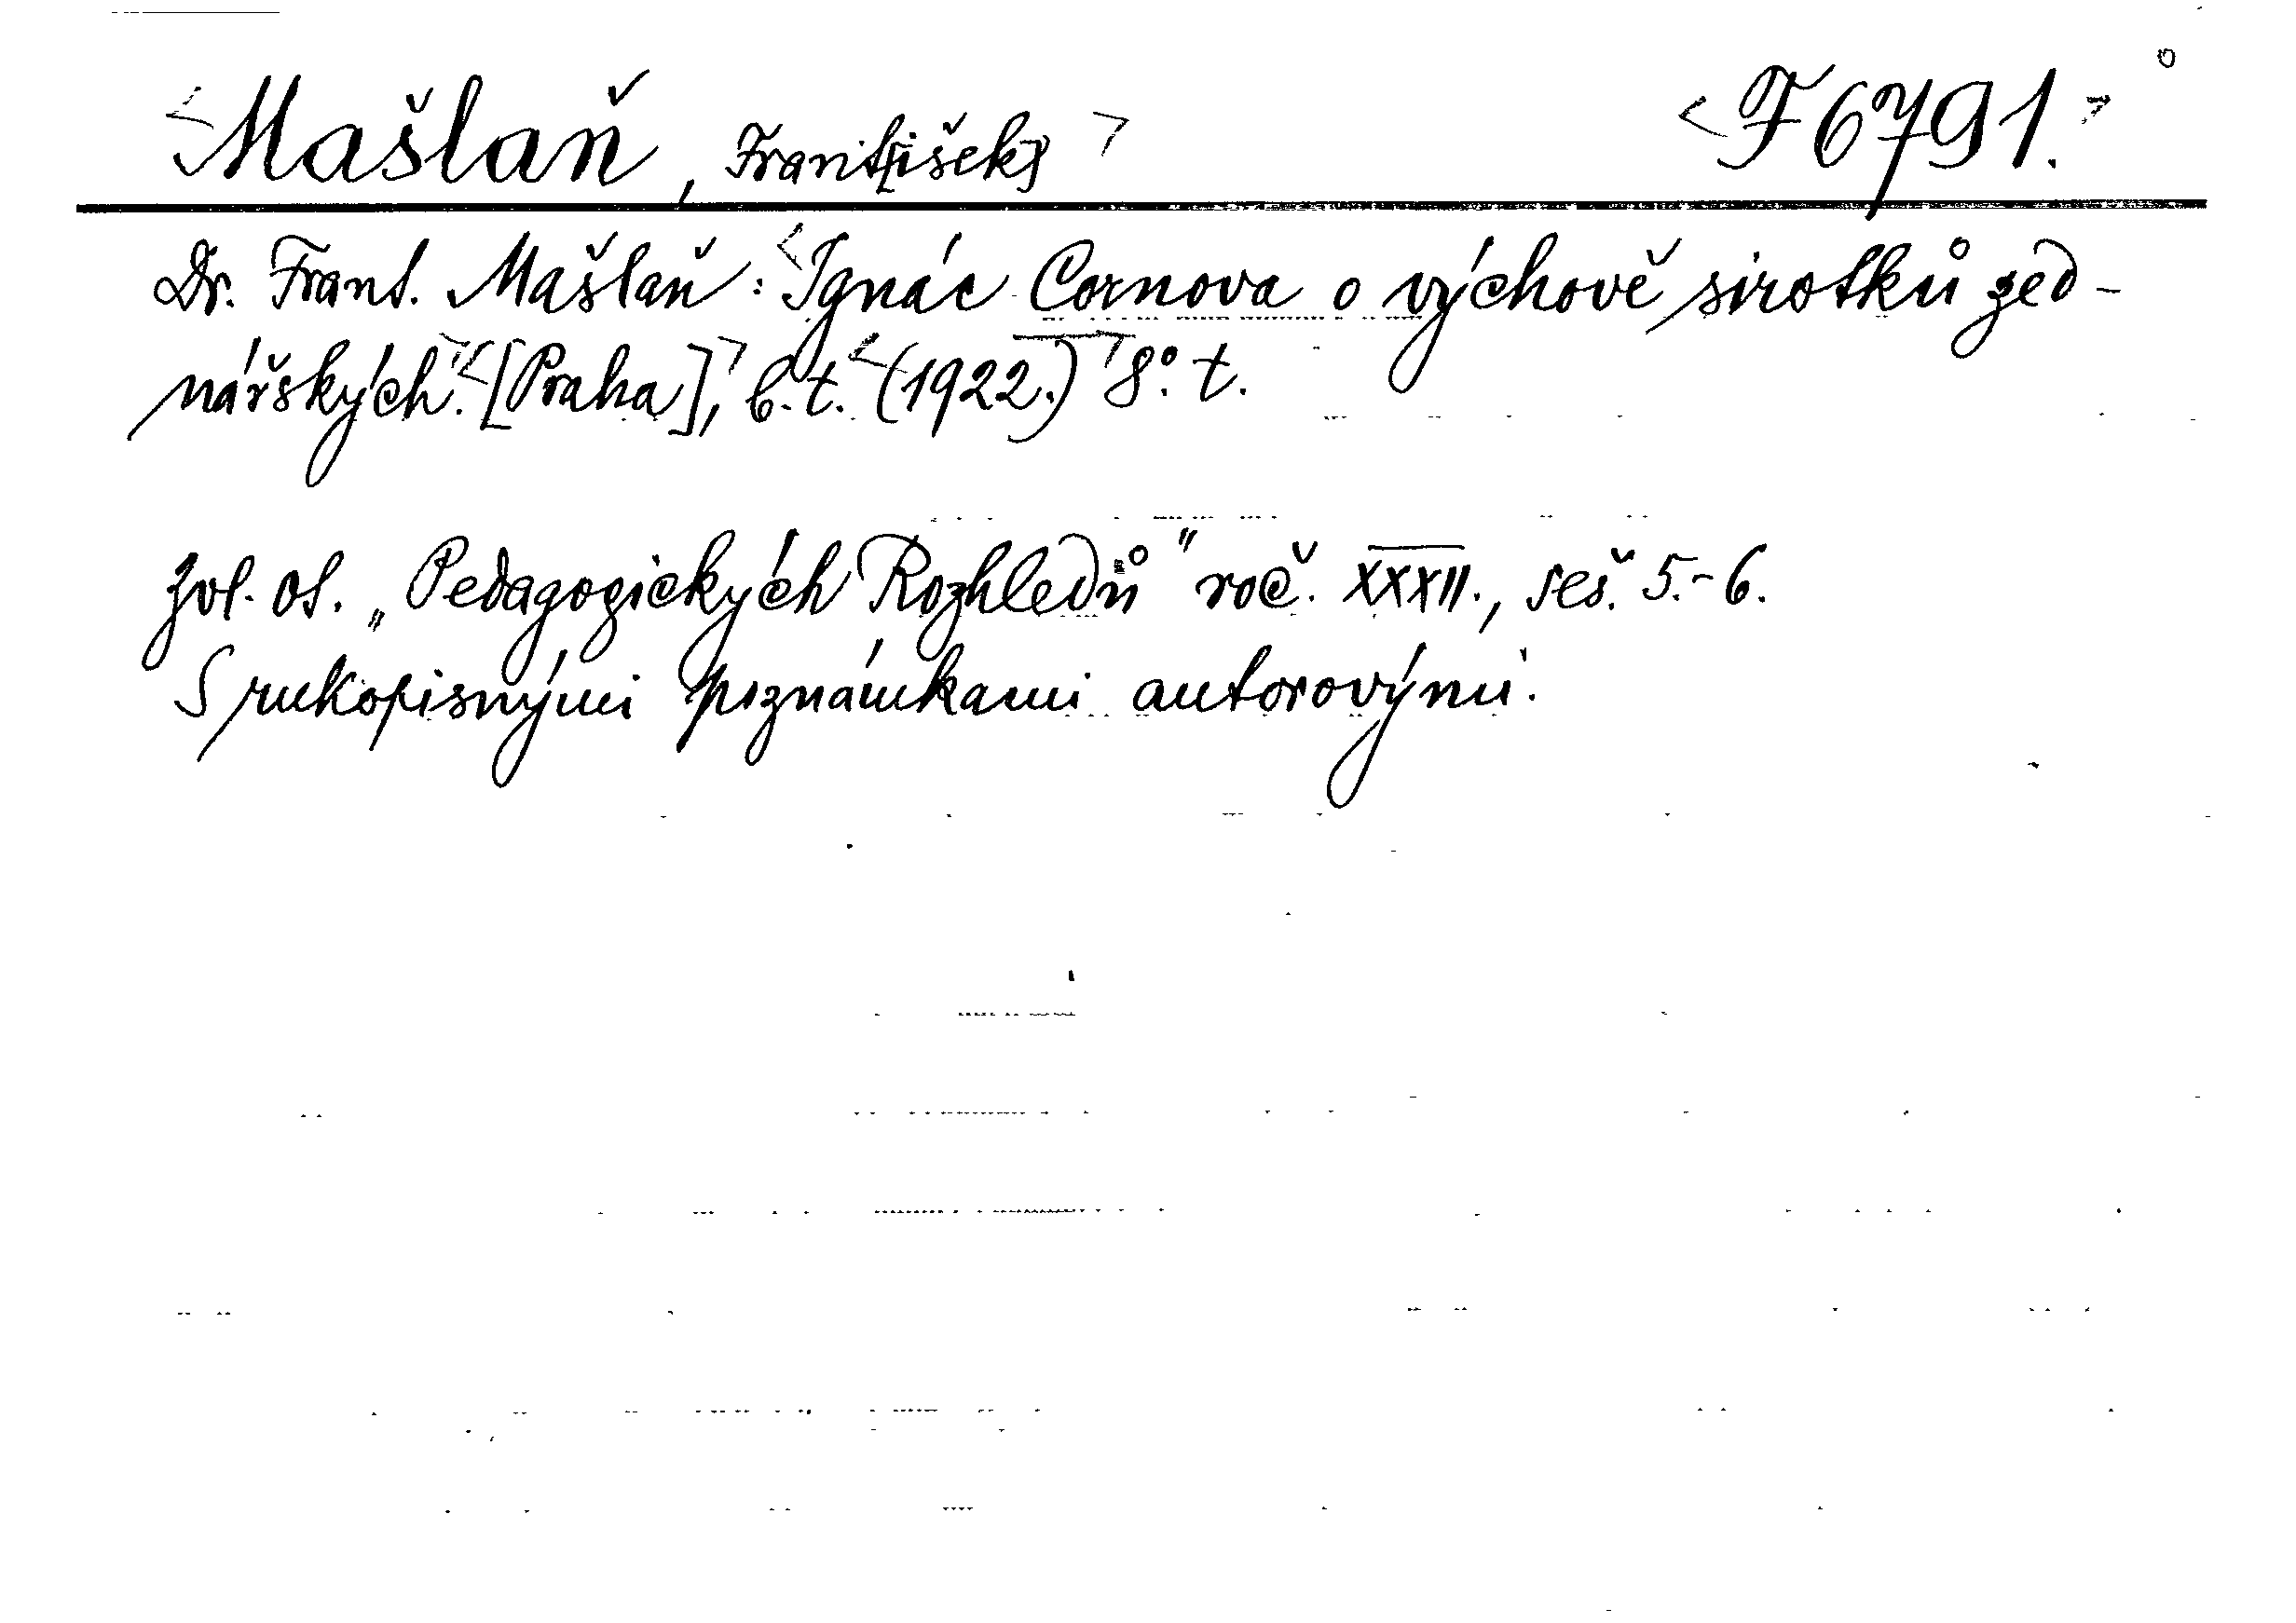 <Mašlaň, Frant[išek]> <F 6791.>
Dr. Frant. Mašlaň: <Ignác Cornova o výchově sirotků zed-
nářských.> <[Praha],> b. t. <(1922.)> 8°. t.
Zvl. ot. „Pedagogických Rozhledů" roč. XXXII., seš. 5.-6.
S rukopisnými poznámkami autorovými.